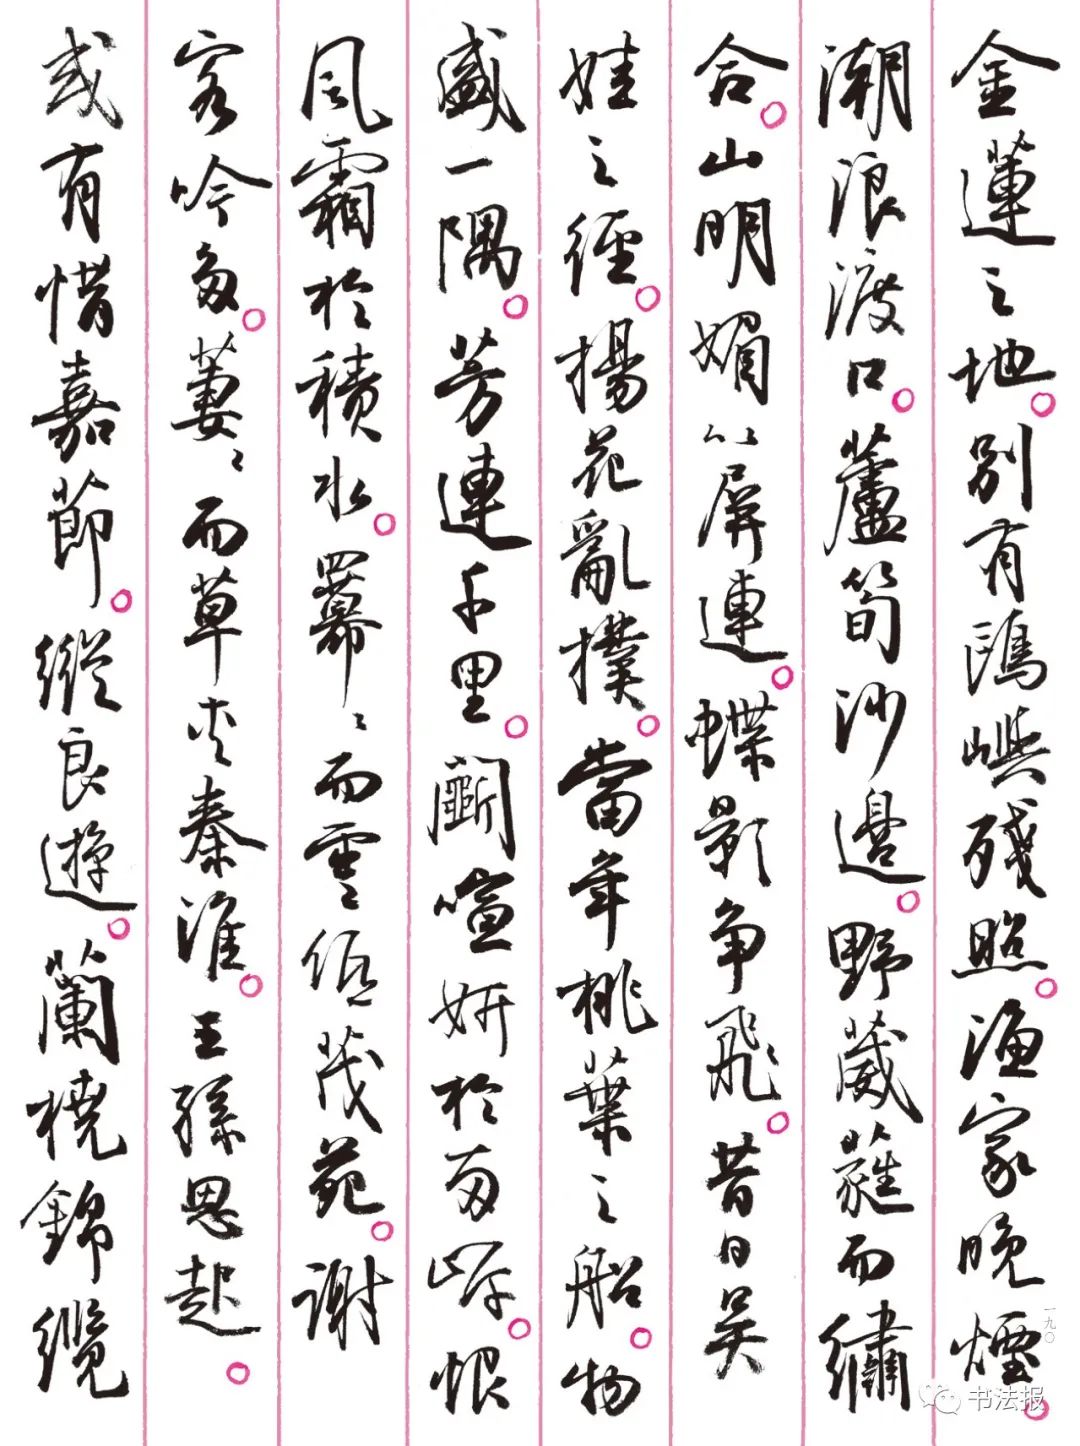 金蓮之地。別有鴻嶼殘照。漁家晚煙。
潮浪渡口。蘆筍沙邊。野葳蕤而繡
合。山明媚以屏連。蝶影爭飛。昔日吳
娃之徑。揚花亂撲。當年桃葉之船。物
盛一隅。芳連千里。鬬喧妍於兩岸。恨
風霜於積水。羃羃而雲低茂苑。謝
客吟多。萋萋而草夾秦淮。王孫思起。
或有惜嘉節。縱良遊。蘭橈錦纜
一九〇
书法报